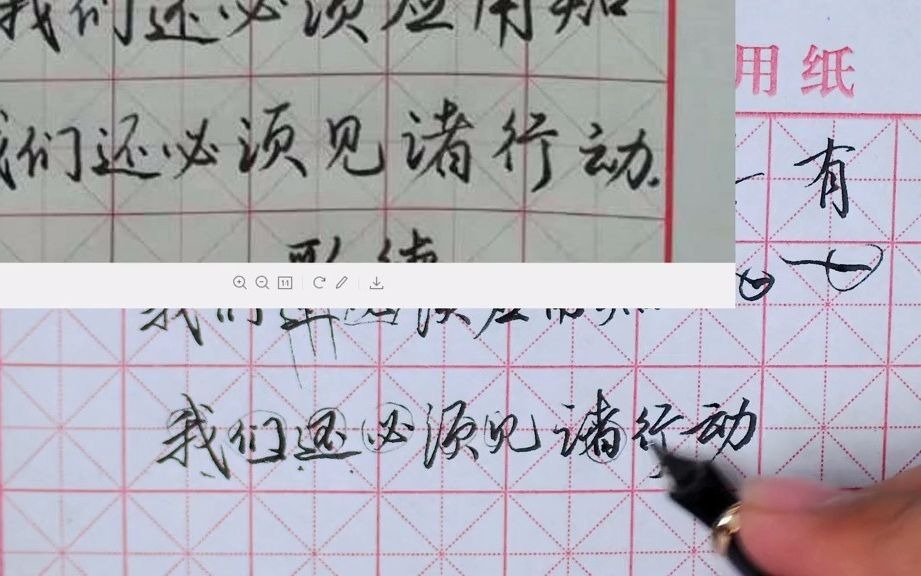 我们还必须应用知
我们还必须见诸行动.
用纸
有
我们还必须应用
我们还必须见诸行动